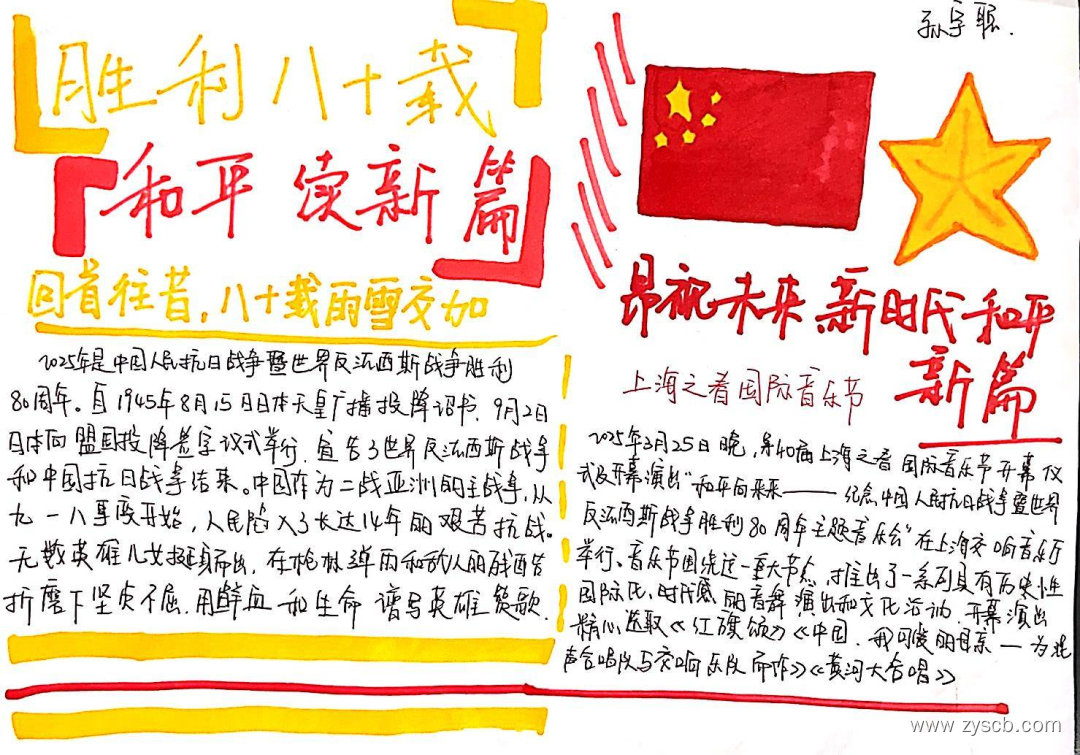 孙宇聪.
胜利八十载
和平续新篇
回首往昔，八十载雨雪交加
2025年是中国人民抗日战争暨世界反法西斯战争胜利
80周年。自1945年8月15日日本天皇广播投降诏书，9月2日
日本向盟国投降签字仪式举行，宣告了世界反法西斯战争
和中国抗日战争结束。中国作为二战亚洲的主战争，从
九一八事变开始，人民陷入了长达14年的艰苦抗战。
无数英雄儿女挺身而出，在枪林弹雨和敌人的残酷
折磨下坚贞不屈，用鲜血和生命谱写英雄赞歌.
昂视未来新时代和平
新篇
上海之春国际音乐节
2025年3月25日晚，第40届上海之春国际音乐节开幕仪
式及开幕演出"和平向未来——纪念中国人民抗日战争暨世界
反法西斯战争胜利80周年主题音乐会"在上海交响音乐厅
举行、音乐节围绕这一重大节点，推出了一系列具有历史性
国际化、时代感的音舞演出和文化活动.开幕演出
精心选取《红旗颂》《中国，我可爱的母亲—为混
声合唱队与交响乐队而作》《黄河大合唱》
www.zyscb.com